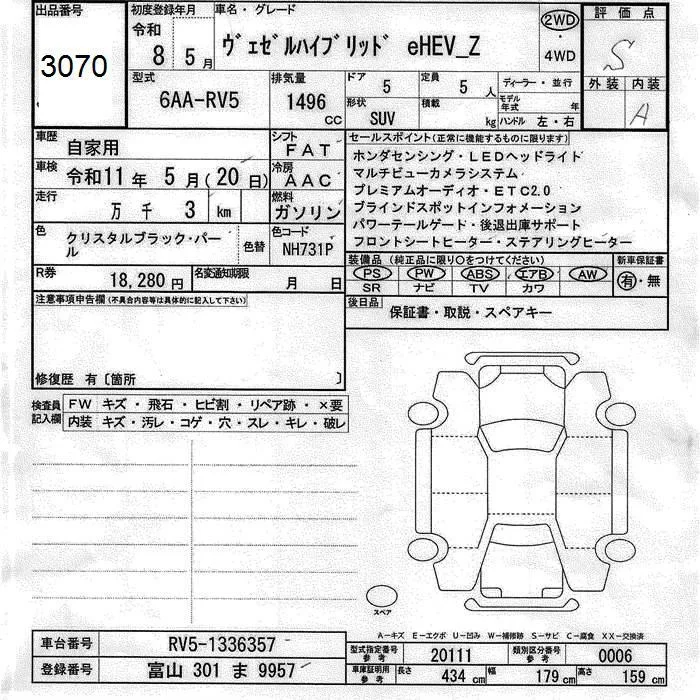 出品番号
3070
初度登録年月
令和
8 5月
車名・グレード
ヴェゼルハイブリッド eHEV_Z
2WD
・
4WD
評価点
S
外装 内装
A
型式
6AA-RV5
排気量
1496
cc
ドア
5
定員
5 人
形状
SUV
積載
kg
ディーラー・並行
モデル年式 年
ハンドル 左・右
車歴
自家用
シフト
FAT
車検
令和11年 5月(20日)
冷房
AAC
走行
万 千 3 km
燃料
ガソリン
色
クリスタルブラック・パール
色替
色コード
NH731P
R券
18,280円
名変通知期限
月 日
セールスポイント(正常に機能するものに限ります)
ホンダセンシング・LEDヘッドライド
マルチビューカメラシステム
プレミアムオーディオ・ETC2.0
ブラインドスポットインフォメーション
パワーテールゲード・後退出庫サポート
フロントシートヒーター・ステアリングヒーター
装備品(純正品に限り○をつけてください)
PS PW ABS エアB AW
SR ナビ TV カワ
新車保証書
有・無
後日品
保証書・取説・スペアキー
注意事項申告欄(不具合内容等は具体的に記入して下さい)
修復歴 有〔箇所 〕
検査員記入欄
FW キズ・飛石・ヒビ割・リペア跡・×要
内装 キズ・汚レ・コゲ・穴・スレ・キレ・破レ
スペア
A-キズ E-エクボ U-凹み W-補修跡 S-サビ C-腐食 XX-交換済
車台番号 RV5-1336357
登録番号 富山 301 ま 9957
型式指定番号 参考 20111
類別区分番号 参考 0006
車庫証明用 参考 長さ 434 cm 幅 179 cm 高さ 159 cm